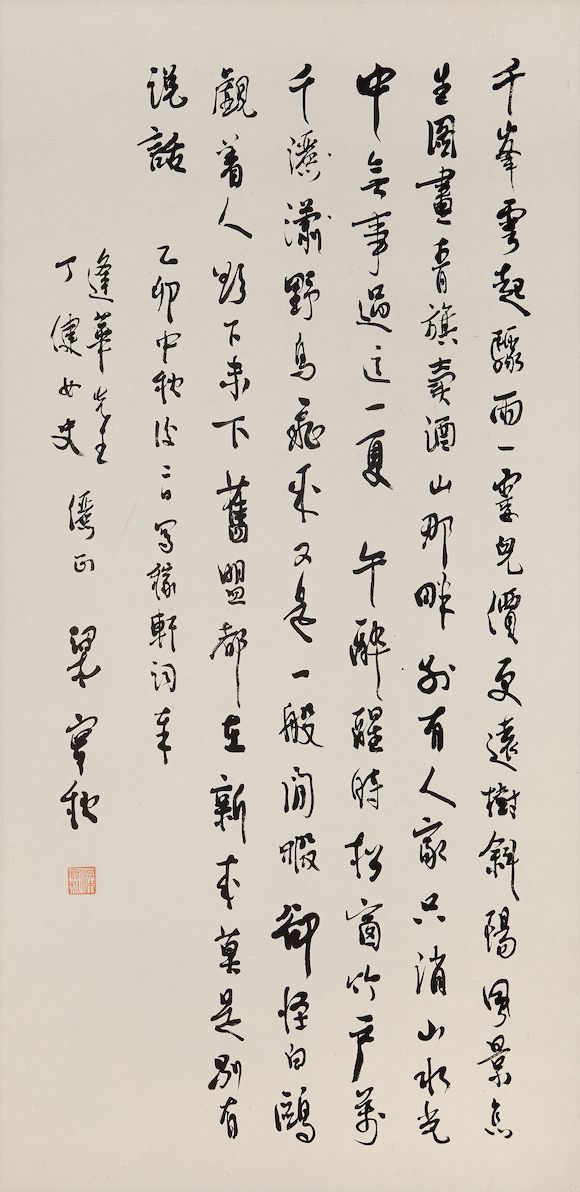 千峯雲起驟雨一霎兒價更遠樹斜陽風景怎
生圖畫青旗賣酒山那畔別有人家只消山水光
中無事過這一夏 午醉醒時松窗竹戶萬
千灑瀟野鳥飛來又是一般閒暇卻怪白鷗
覷着人欲下未下舊盟都在新來莫是別有
說話 乙卯中秋後二日寫稼軒詞奉
逢華先生
丁健女史 儷正 梁實秋